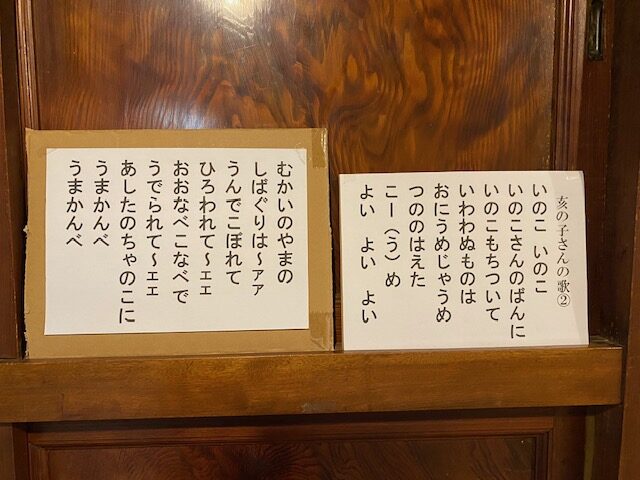 亥の子さんの歌②
いのこ　いのこ
いのこさんのばんに
いのこもちついて
いわわぬものは
おにうめじゃうめ
つののはえた
こー（う）め
よい　よい　よい
むかいのやまの
しばぐりは～ァァ
うんでこぼれて
ひろわれて～ェェ
おおなべこなべで
うでられて～ェェ
あしたのちゃのこに
うまかんべ
うまかんべ